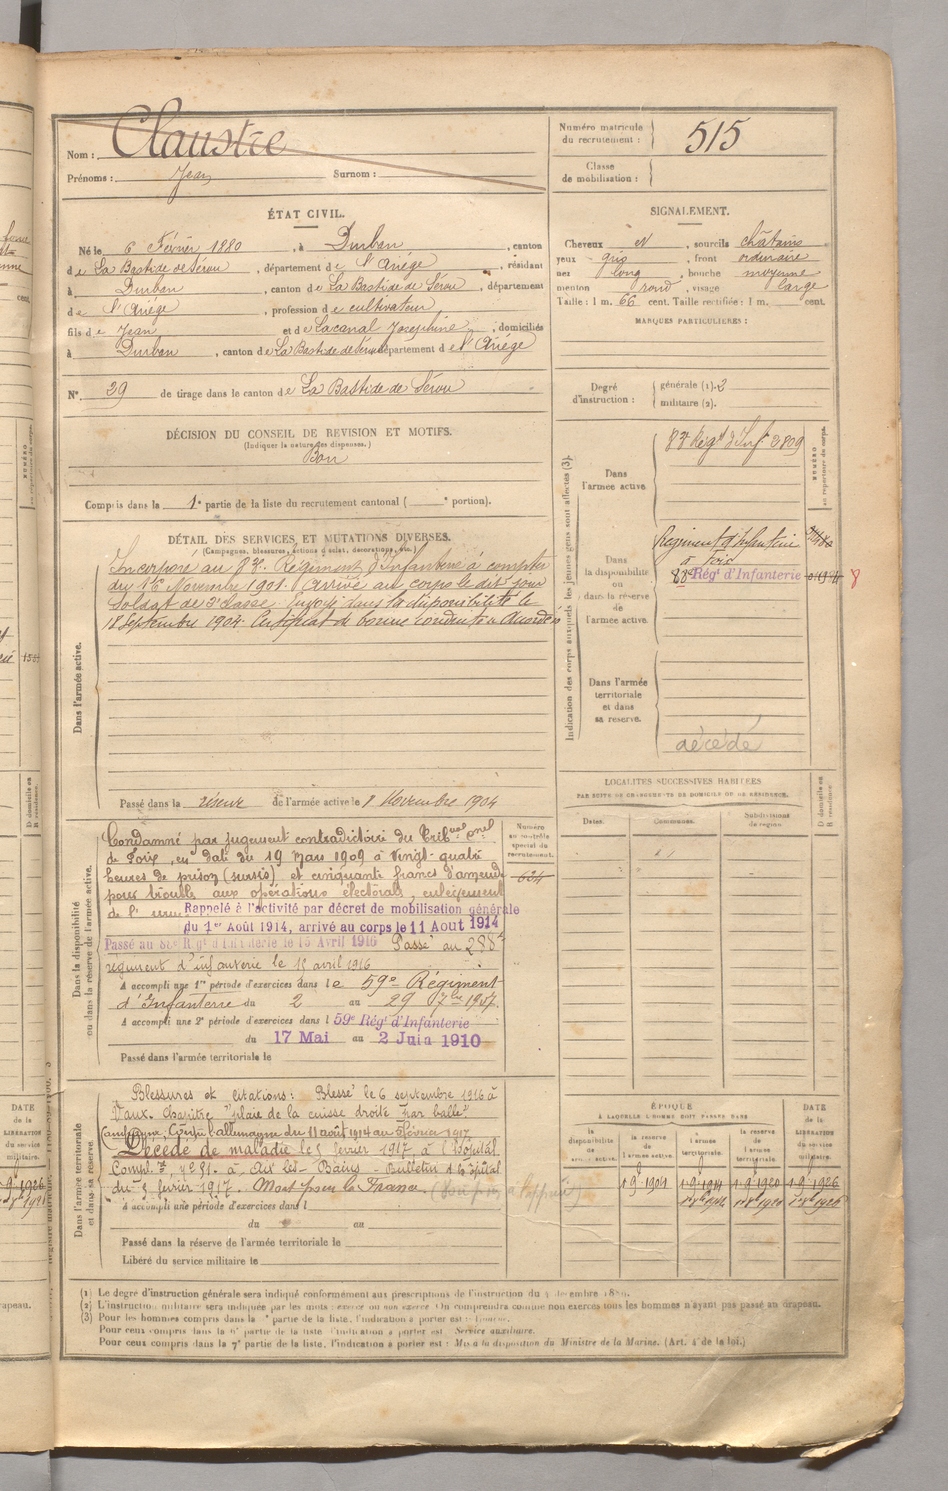 Nom : Claustre
Prénoms : Jean Surnom :
Numéro matricule du recrutement : 515
Classe de mobilisation :
ÉTAT CIVIL.
Né le 6 Février 1880, à Durban, canton
de La Bastide de Sérou, département de l'Ariége, résidant
à Durban, canton de La Bastide de Sérou, département
de l'Ariége, profession de cultivateur
fils de Jean et de Lacanal Joséphine, domiciliés
à Durban, canton de La Bastide de Sérou département de l'Ariége
N° 29 de tirage dans le canton de La Bastide de Sérou
SIGNALEMENT.
Cheveux et, sourcils châtains
yeux gris, front ordinaire
nez long, bouche moyenne
menton rond, visage large
Taille : 1 m. 66 cent. Taille rectifiée : 1 m. cent.
MARQUES PARTICULIÈRES :
Degré d'instruction : générale (1). 2
militaire (2).
DÉCISION DU CONSEIL DE REVISION ET MOTIFS.
(Indiquer la nature des dispenses.)
Bon
Compris dans la 1e partie de la liste du recrutement cantonal ( e portion).
DÉTAIL DES SERVICES ET MUTATIONS DIVERSES.
(Campagnes, blessures, actions d'éclat, décorations, etc.)
Dans l'armée active.
Incorporé au 83e Régiment d'Infanterie à compter
du 16 Novembre 1901. Arrivé au corps le dit jour
Soldat de 2e classe. Envoyé dans la disponibilité le
18 Septembre 1904. Certificat de bonne conduite Accordé
Passé dans la réserve de l'armée active le 1 Novembre 1904
Indication des corps auxquels les jeunes gens sont affectés (3).
NUMÉRO au répertoire du corps.
Dans l'armée active.
83e Régt d'Inf 3809
Dans la disponibilité ou dans la réserve de l'armée active.
Régiment d'Infanterie
à Foix
88e Régt d'Infanterie
8
Dans l'armée territoriale et dans sa réserve.
décédé
LOCALITÉS SUCCESSIVES HABITÉES
PAR SUITE DE CHANGEMENTS DE DOMICILE OU DE RÉSIDENCE.
Dates. Communes. Subdivisions de région. D domicile ou R résidence.
Dans la disponibilité ou dans la réserve de l'armée active.
Numéro au contrôle spécial du recrutement.
634
Condamné par jugement contradictoire du Tribunal Cnel
de Foix, en date du 19 Mars 1909 à vingt-quatre
heures de prison (sursis) et cinquante francs d'amende
pour trouble aux opérations électorales, enlèvement
de l'urne
Rappelé à l'activité par décret de mobilisation générale
du 1er Août 1914, arrivé au corps le 11 Aout 1914
Passé au 88e Régt d'Infanterie le 15 Avril 1916 Passé au 288e
régiment d'infanterie le 15 avril 1916
A accompli une 1re période d'exercices dans le 59e Régiment
d'Infanterie du 2 au 29 7bre 1907.
A accompli une 2e période d'exercices dans l 59e Régt d'Infanterie
du 17 Mai au 2 Juin 1910
Passé dans l'armée territoriale le
Dans l'armée territoriale et dans sa réserve.
Blessures et citations : Blessé le 6 septembre 1916 à
Vaux-Chapitre "plaie de la cuisse droite par balle"
Campagne Contre l'allemagne du 11 août 1914 au 5 février 1917
Décédé de maladie le 5 février 1917, à l'Hôpital
Compl.re n° 31. à Aix les-Bains - Bulletin d'hôpital
du 5 février 1917. Mort pour la France
A accompli une période d'exercices dans l
du au
Passé dans la réserve de l'armée territoriale le
Libéré du service militaire le
ÉPOQUE
À LAQUELLE L'HOMME DOIT PASSER DANS
la disponibilité de l'armée active. la réserve de l'armée active. l'armée territoriale. la réserve de l'armée territoriale.
DATE de la LIBÉRATION du service militaire.
1 9 1904 1 9 1914 1 9 1920 1 9 1926
(1) Le degré d'instruction générale sera indiqué conformément aux prescriptions de l'instruction du 4 décembre 1889.
(2) L'instruction militaire sera indiquée par les mots : exercé ou non exercé. On comprendra comme non exercés tous les hommes n'ayant pas passé au drapeau.
(3) Pour les hommes compris dans la partie de la liste, l'indication à porter est :
Pour ceux compris dans la 6e partie de la liste l'indication à porter est Service auxiliaire.
Pour ceux compris dans la 7e partie de la liste, l'indication à porter est : Mis à la disposition du Ministre de la Marine. (Art. 4 de la loi.)